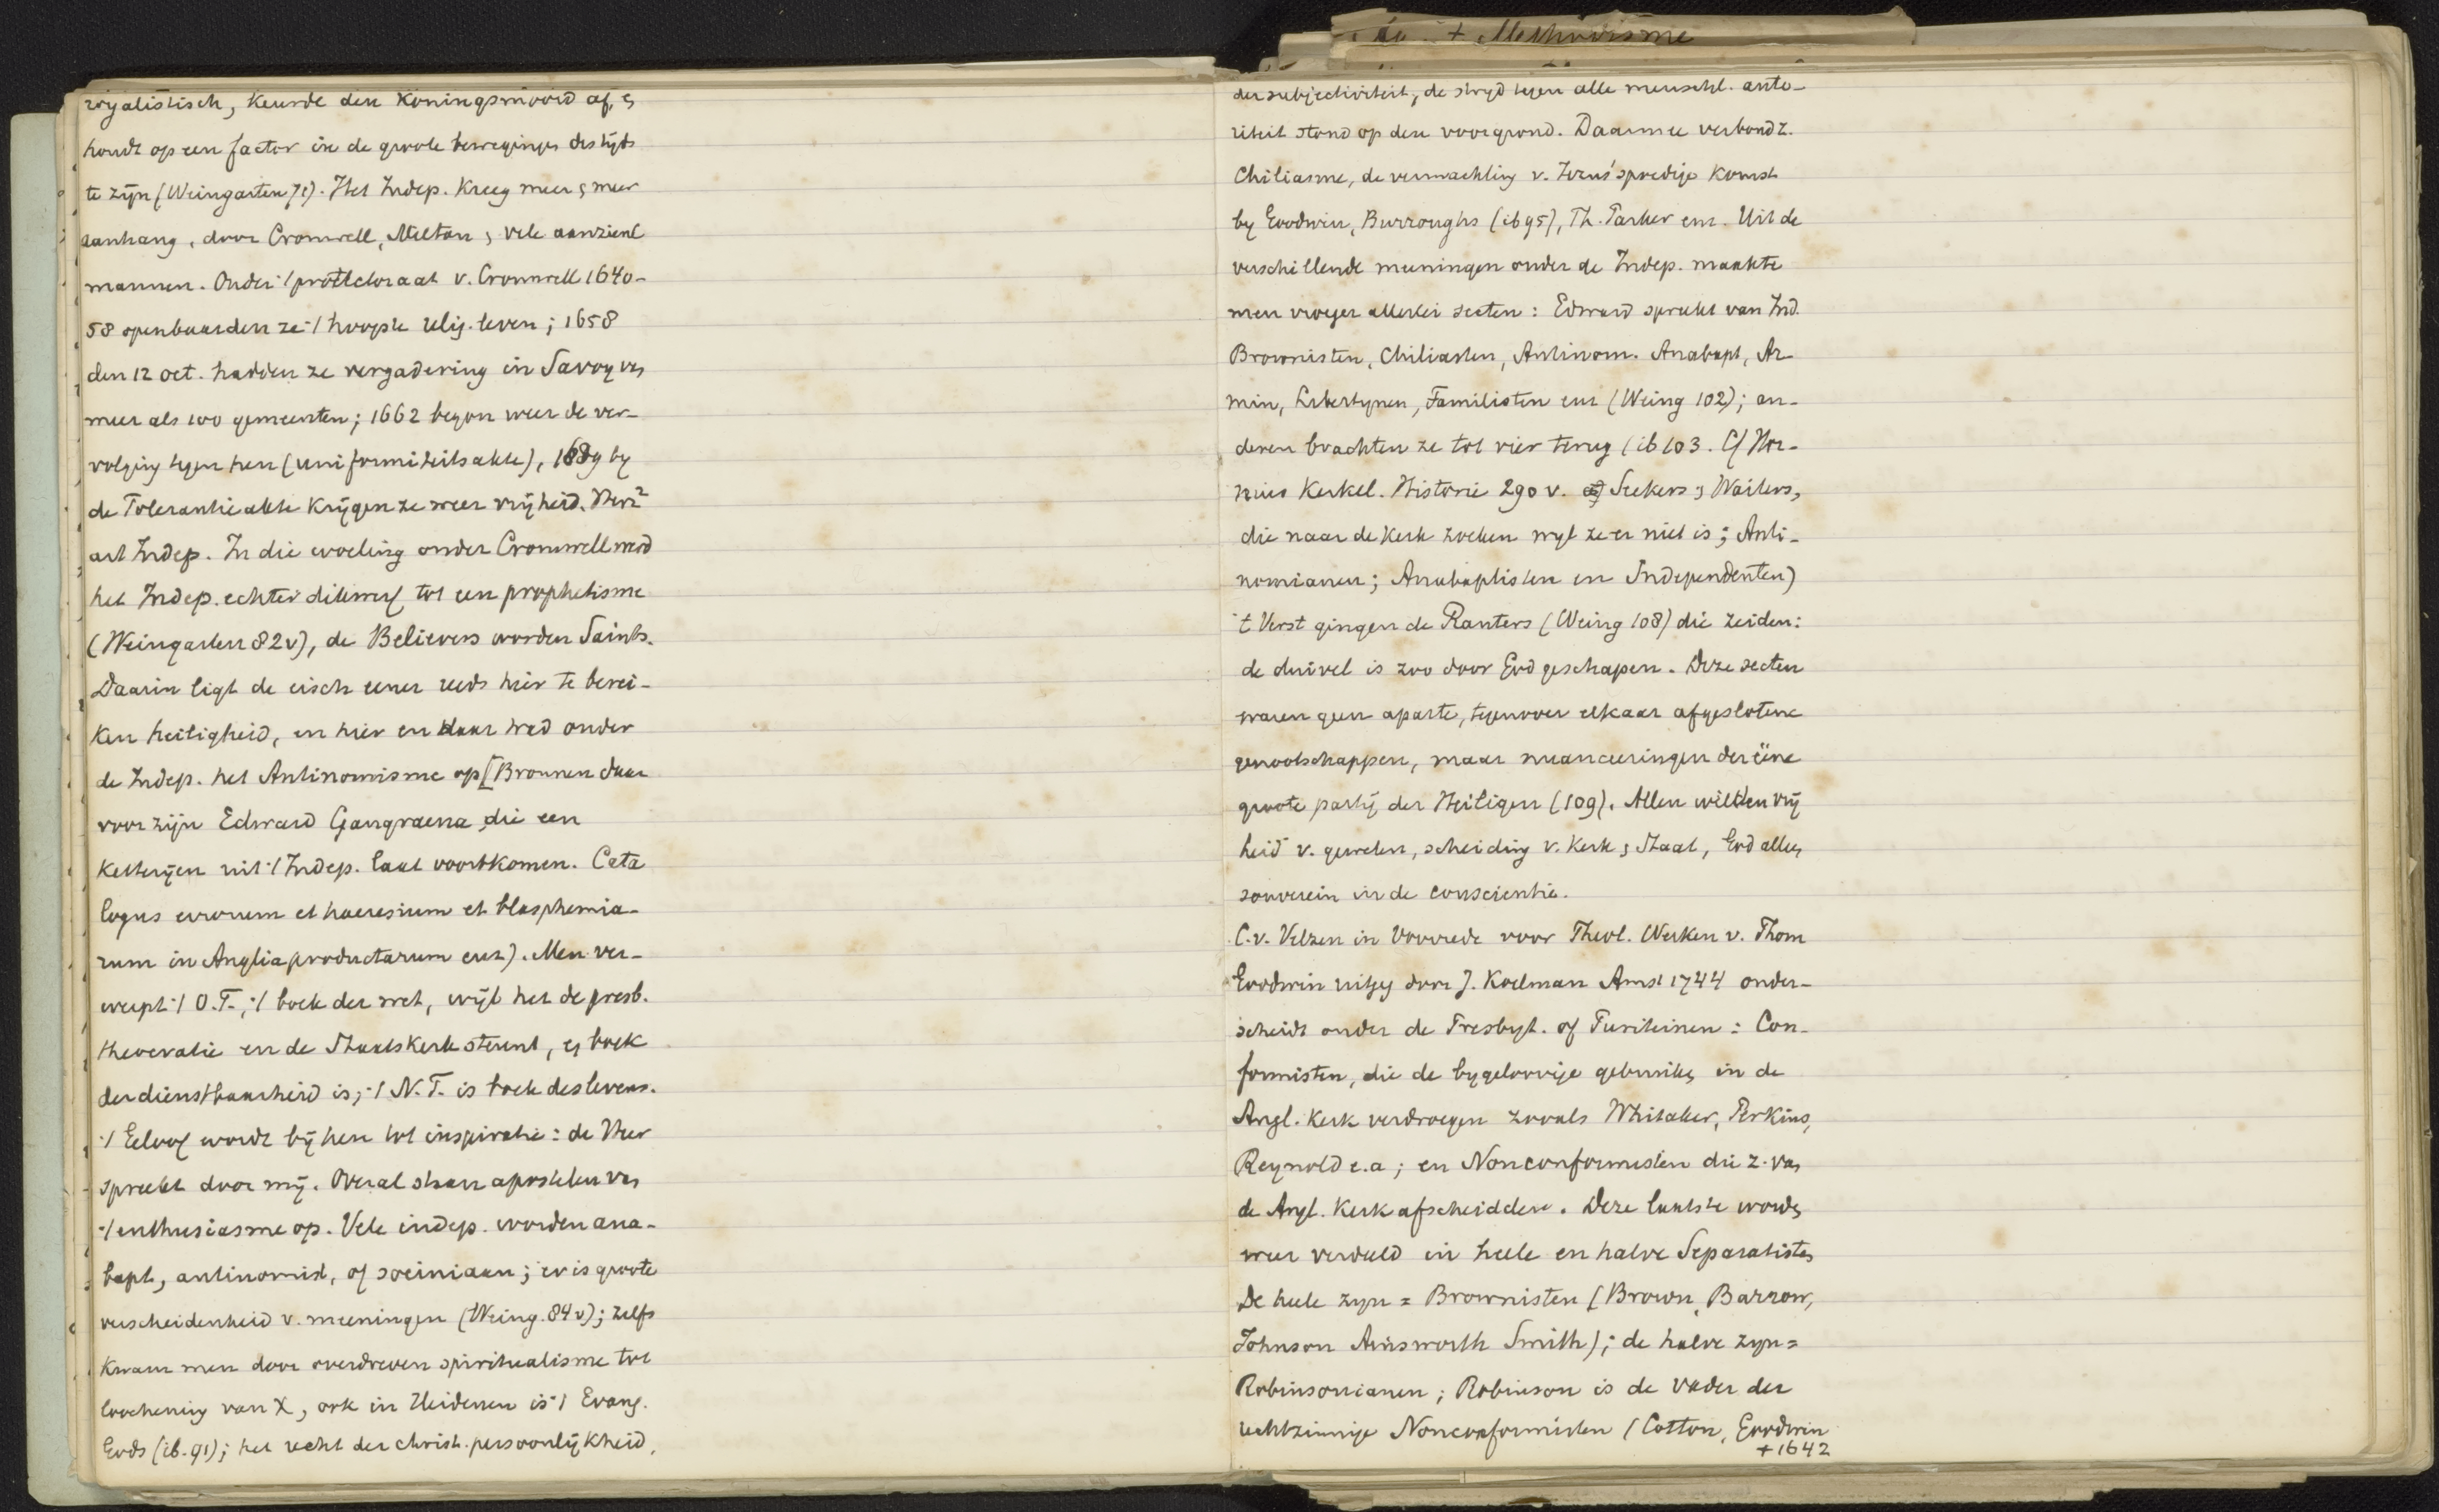 royalistisch, keurde den Koningsmoord af, &
houdt op een factor in de groote bewegingen des tijds
te zijn (Weingarten 71). Het Indep. kreeg meer & meer
aanhang, door Cromwell, Milton & vele aanzienl
mannen. Onder 't protectoraat v. Cromwell 1640-
58 openbaarden ze 't hoogste relig. leven; 1658
den 12 oct. hadden ze vergadering in Savoy van
meer als 100 gemeenten; 1662 begon weer de ver-
volging tegen hen (uniformiteitsakte), 1689 by
de Tolerantie akte krijgen ze weer vrijheid.
art Indep. In die woeling onder Cromwell werd
het Indep. echter dikwerf tot een prophetisme
(Weingarten 82v), de Believers worden Saints.
Daarin ligt de eisch eener reeds hier te berei-
ken heiligheid, en hier en daar trad onder
de Indep. het Antinomisme op [Bronnen daar
voor zijn Edward Gangraena, die een
ketterijen uit 't Indep. laat voortkomen. Cata
logus errorum et haeresium et blasphemia-
rum in Anglia productarum enz). Men ver-
werpt 't O.T., 't boek der wet, wijl het de presb.
theocratie en de Staatskerk steunt, & boek
der dienstbaarheid is; 't N.T. is boek des levens.
't Geloof wordt bij hen tot inspiratie: de Heer
spreekt door mij. Overal staan apostelen van
't enthusiasme op. Vele indep. worden ana-
bapt, antinomist, of sociniaan; er is groote
verscheidenheid v. meeningen (Weing. 84v); zelfs
kwam men door overdreven spiritualisme tot
loochening van X, ook in Heidenen is 't Evang.
Gods (ib. 91); het recht der christ. persoonlijkheid,
+ Methodisme
der subjectiviteit, de strijd tegen alle menschl. auto-
riteit stond op den voorgrond. Daarmee verbond z.
Chiliasme, de verwachting v. Jezus' spoedige komst
by Goodwin, Burroughs (ib 95), Th. Parker enz. Uit de
verschillende meeningen onder de Indep. maakte
men vroeger allerlei secten: Edward spreekt van Ind.
Brownisten, Chiliasten, Antinom. Anabapt, Ar-
min, Libertynen, Familisten enz (Weing 102); an-
deren brachten ze tot vier terug (ib 103. Cf Hor-
nius Kerkel. Historie 290 v. Seekers & Waiters,
die naar de Kerk zoeken wyl ze er niet is; Anti-
nomianen; Anabaptisten en Independenten)
't Verst gingen de Ranters (Weing 108) die zeiden:
de duivel is zoo door God geschapen. Deze secten
waren geen aparte, tegenover elkaar afgeslotene
genootschappen, maar nuanceeringen der ééne
groote partij der Heiligen (109). Allen wilden vrij
heid v. geweten, scheiding v. Kerk & Staat, God alleen
souverein in de conscientie.
C. v. Velzen in Voorrede voor Theol. Werken v. Thom
Goodwin uitgeg door J. Koelman Amst 1744 onder-
scheidt onder de Presbyt. of Puriteinen: Con-
formisten, die de bygeloovige gebruiken in de
Angl. Kerk verdroegen zooals Whitaker, Perkins,
Reynold e.a; en Nonconformisten die z. van
de Angl. Kerk afscheidden. Deze laatste worden
weer verdeeld in heele en halve Separatisten
De heele zyn = Brownisten (Brown, Barrow,
Johnson Ainsworth Smith); de halve zyn =
Robinsonianen; Robinson is de vader der
rechtzinnige Nonconformisten (Cotton, Goodwin
+1642